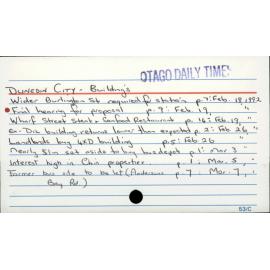 OTAGO DAILY TIMES
DUNEDIN CITY - Buildings
Wider Burlington St required for station p.7: Feb. 18, 1992
Final hearing for proposal p.9: Feb. 19, "
Wharf Street Start - Seafood Restaurant p.16: Feb. 19, "
Ex-DIC building returns lower than expected p.2: Feb 26, "
Landlords buy 4XD building p.5: Feb 26
Nearly $1m set aside to buy bus depot p.1: Mar 3 "
Interest high in Chin properties p.1: Mar. 5, "
Former bus site to be let (Andersons p.7: Mar. 7, '
Bay Rd.)
53/C